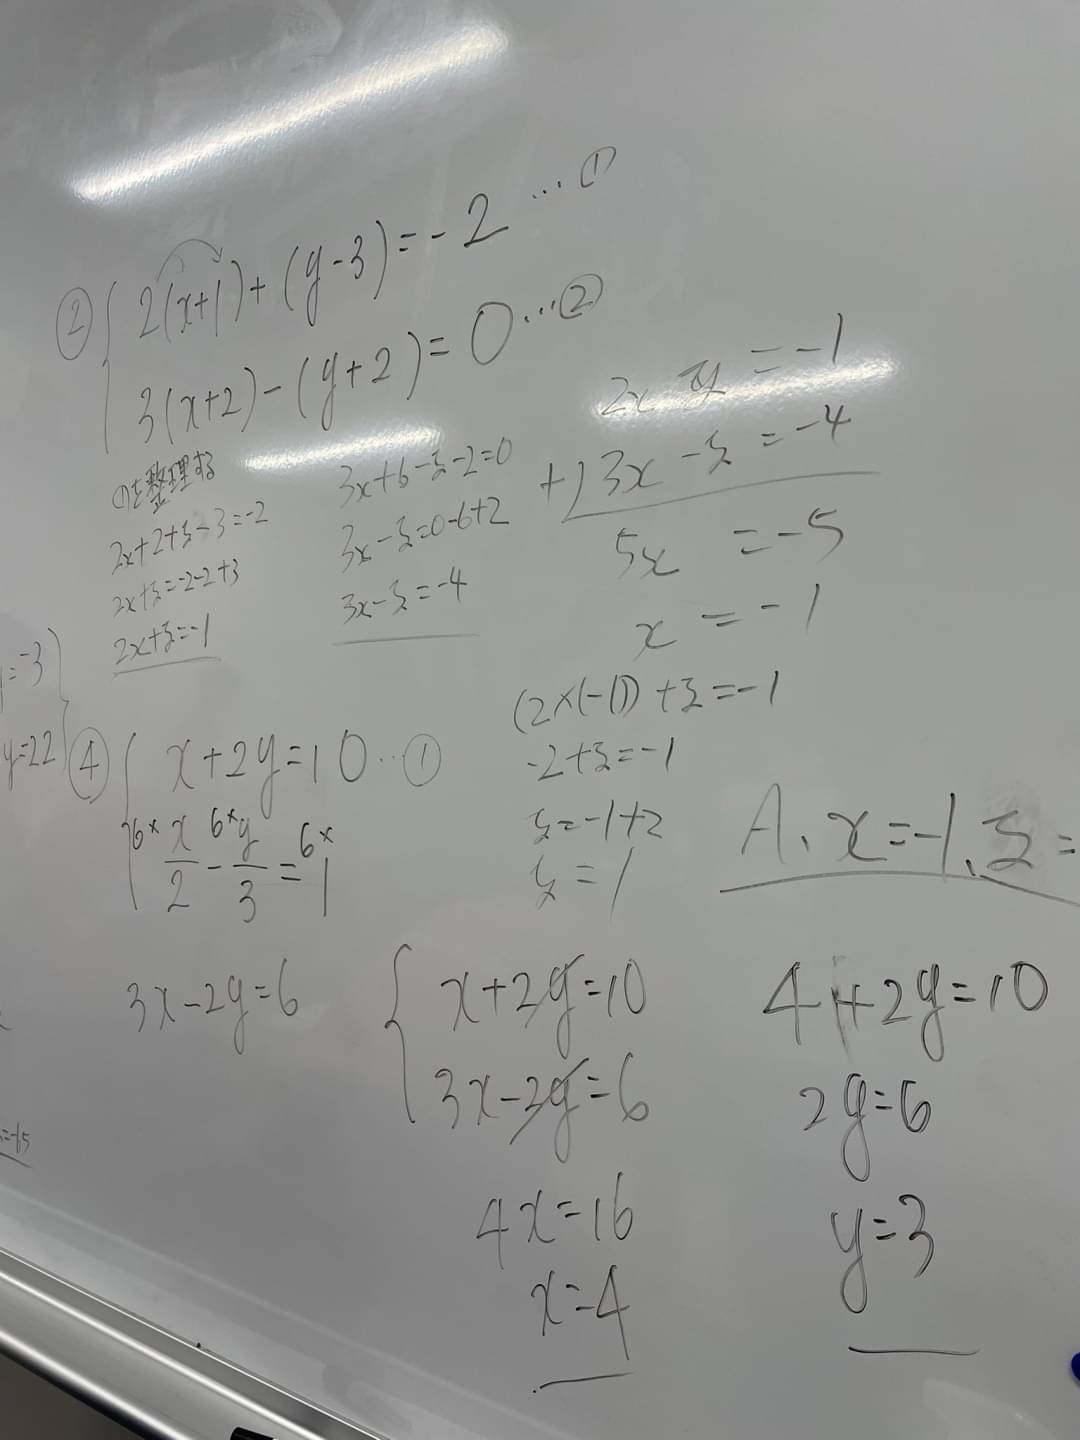 ② { 2(x+1)+(y-3)=-2 …①
3(x+2)-(y+2)=0 …②
①を整理する
2x+2+y-3=-2
2x+y=-2-2+3
2x+y=-1
3x+6-y-2=0
3x-y=0-6+2
3x-y=-4
2x y=-1
+) 3x-y=-4
5x =-5
x =-1
(2×(-1))+y=-1
-2+y=-1
y=-1+2
y=1
A、x=-1、y=
=-3
y=22
④ { x+2y=10 …①
6× x/2 - 6× y/3 = 6× 1
3x-2y=6
{ x+2y=10
3x-2y=6
4x=16
x=4
4+2y=10
2y=6
y=3
=-15